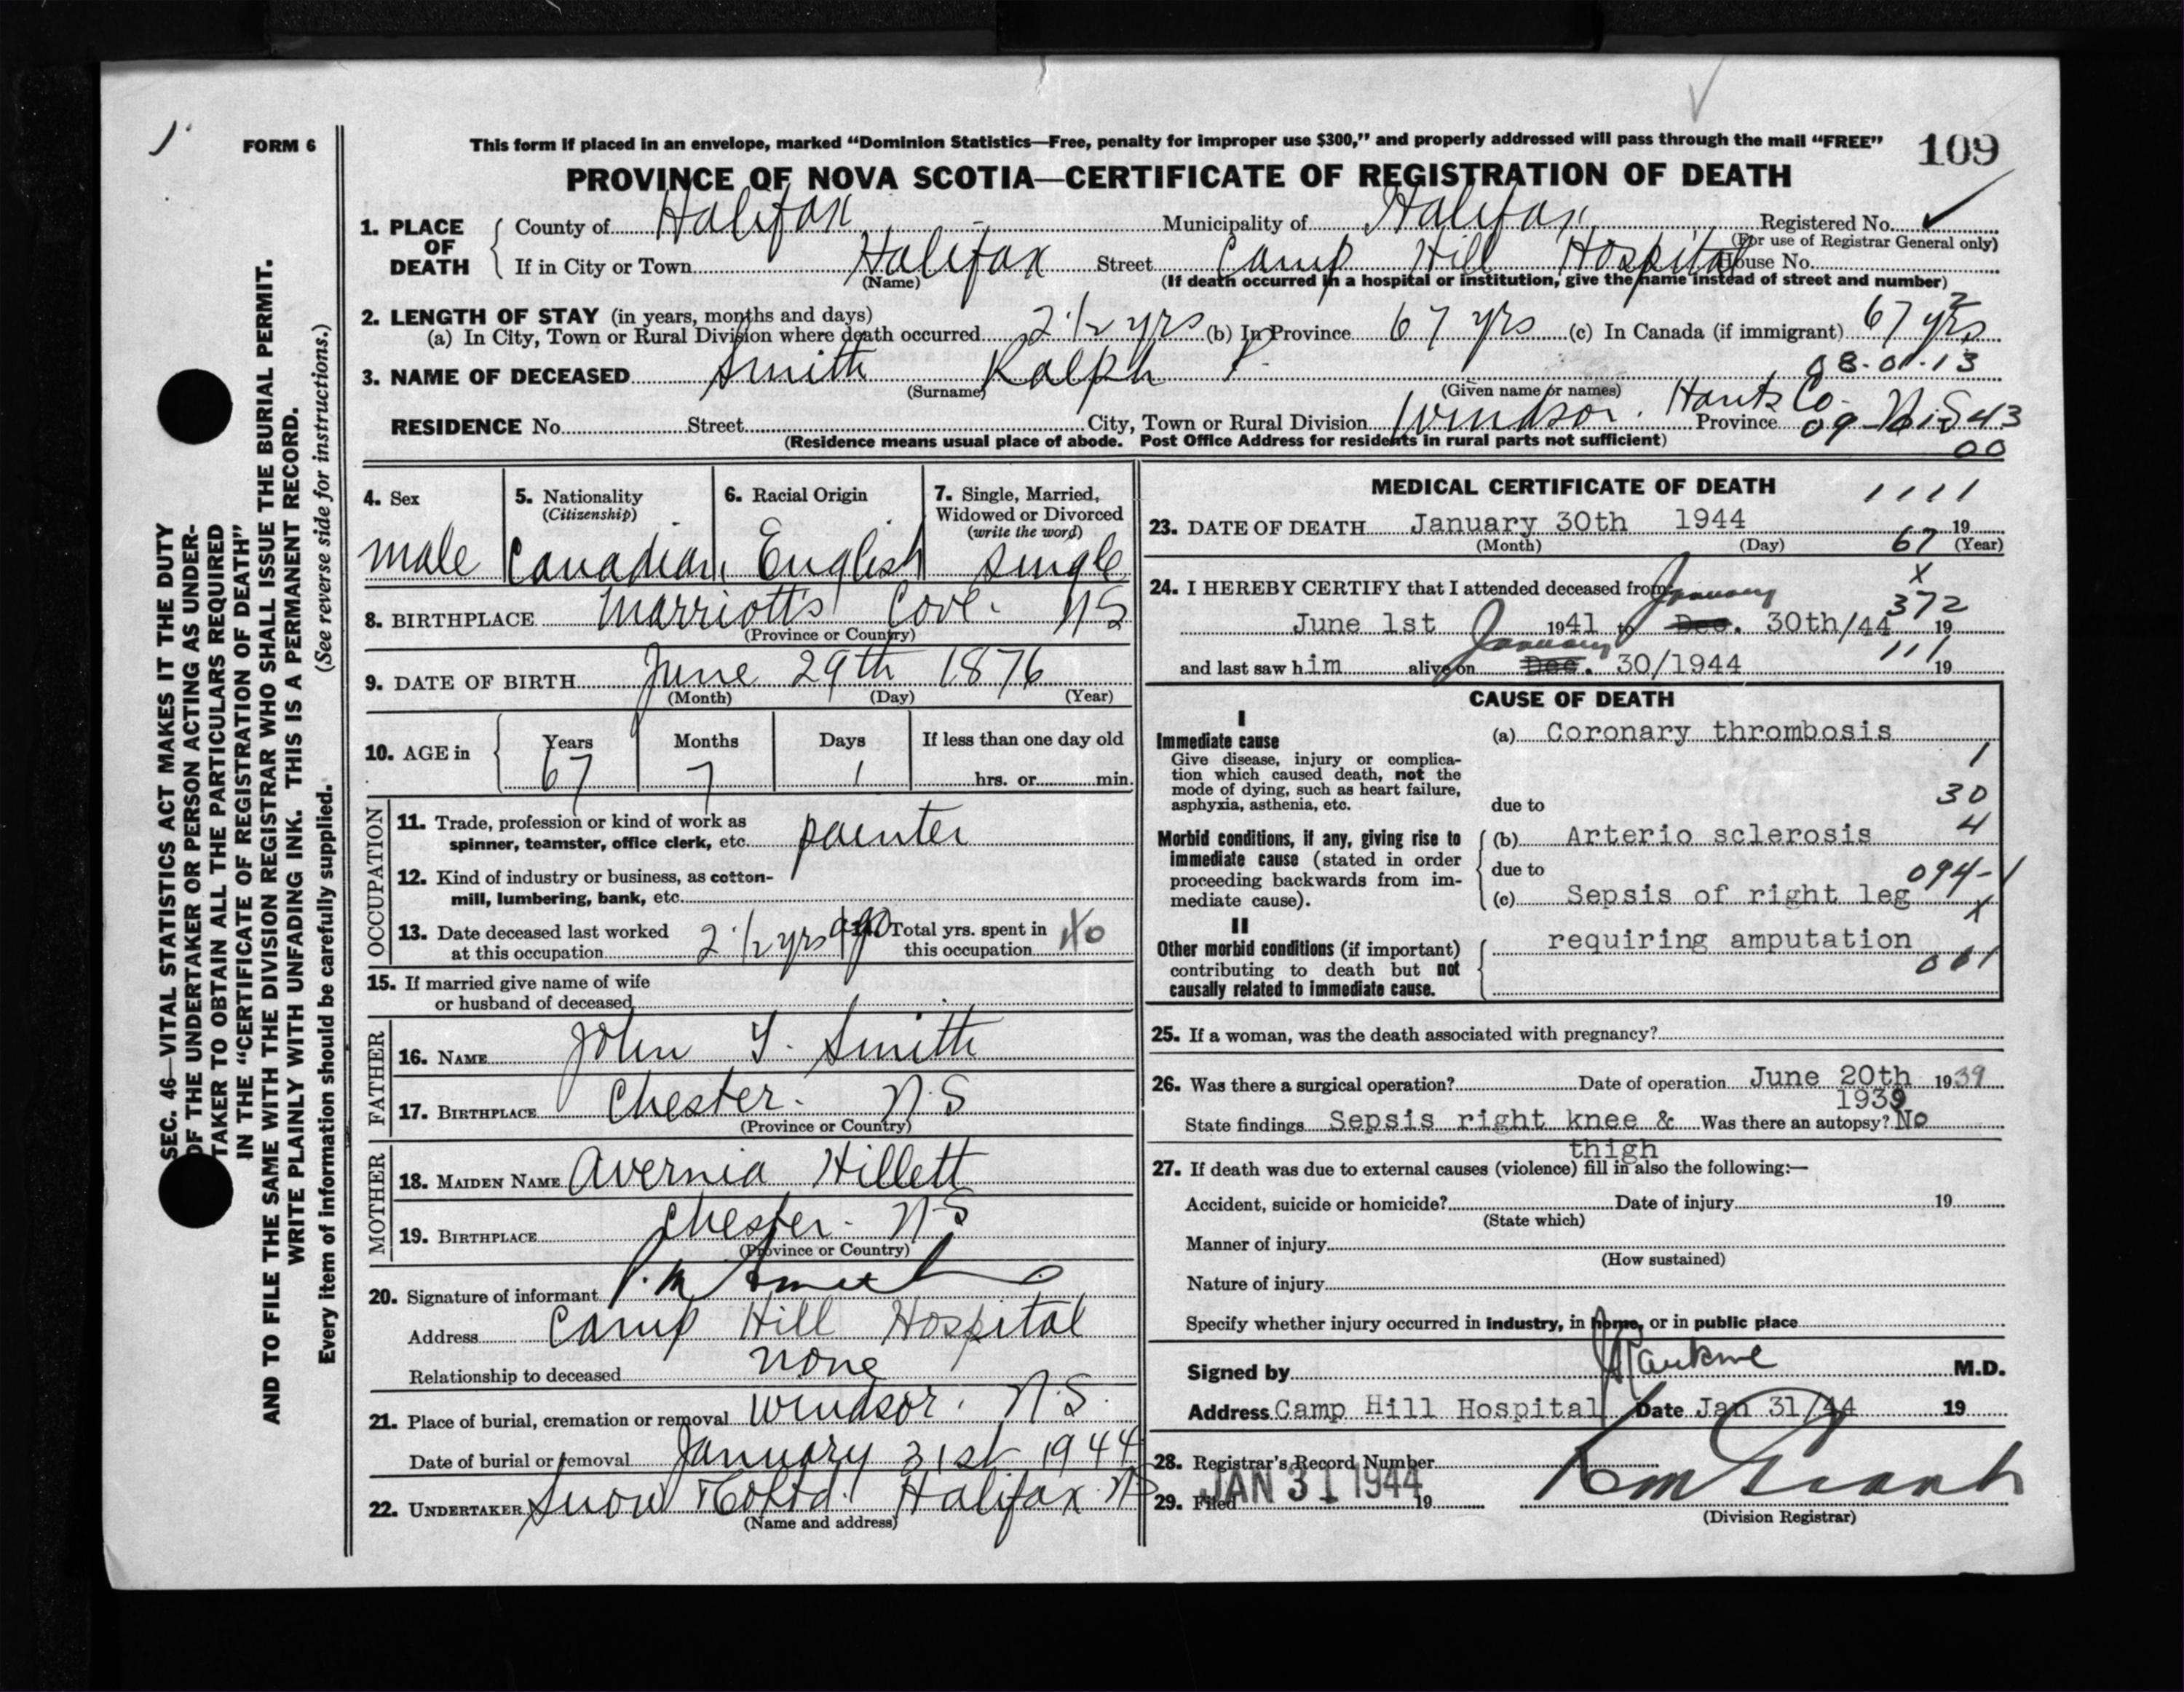 FORM 6
This form if placed in an envelope, marked "Dominion Statistics—Free, penalty for improper use $300," and properly addressed will pass through the mail "FREE"
109
PROVINCE OF NOVA SCOTIA—CERTIFICATE OF REGISTRATION OF DEATH
1. PLACE OF DEATH
County of Halifax Municipality of Halifax Registered No.
(For use of Registrar General only)
If in City or Town Halifax Street Camp Hill Hospital House No.
(Name) (If death occurred in a hospital or institution, give the name instead of street and number)
2. LENGTH OF STAY (in years, months and days)
(a) In City, Town or Rural Division where death occurred 2 1/2 yrs (b) In Province 67 yrs (c) In Canada (if immigrant) 67 yrs
2
08-01-13
3. NAME OF DECEASED Smith Ralph
(Surname) (Given name or names)
RESIDENCE No. Street City, Town or Rural Division Windsor. Hants Co. Province N.S
09- 43
00
(Residence means usual place of abode. Post Office Address for residents in rural parts not sufficient)
4. Sex
male
5. Nationality
(Citizenship)
Canadian
6. Racial Origin
English
7. Single, Married,
Widowed or Divorced
(write the word)
single
8. BIRTHPLACE Marriotts Cove. NS
(Province or Country)
9. DATE OF BIRTH June 29th 1876
(Month) (Day) (Year)
10. AGE in Years Months Days If less than one day old
67 7 1 hrs. or min.
OCCUPATION
11. Trade, profession or kind of work as
spinner, teamster, office clerk, etc. painter
12. Kind of industry or business, as cotton-
mill, lumbering, bank, etc.
13. Date deceased last worked
at this occupation 2 1/2 yrs ago
Total yrs. spent in
this occupation 40
15. If married give name of wife
or husband of deceased
FATHER
16. NAME John Y. Smith
17. BIRTHPLACE Chester. N.S
(Province or Country)
MOTHER
18. MAIDEN NAME Avernia Hillett
19. BIRTHPLACE Chester. N-S
(Province or Country)
20. Signature of informant
Address Camp Hill Hospital
Relationship to deceased none
21. Place of burial, cremation or removal Windsor, N.S.
Date of burial or removal January 31st 1944
22. UNDERTAKER Snow & Co Ltd. Halifax NS
(Name and address)
MEDICAL CERTIFICATE OF DEATH
1111
23. DATE OF DEATH January 30th 1944 19
(Month) (Day) (Year)
67
24. I HEREBY CERTIFY that I attended deceased from
X
January
372
June 1st 1941 to Dec. 30th/44 19
January
111
and last saw him alive on Dec. 30/1944 19
CAUSE OF DEATH
I
Immediate cause
Give disease, injury or complica-
tion which caused death, not the
mode of dying, such as heart failure,
asphyxia, asthenia, etc.
(a) Coronary thrombosis
1
30
due to
Morbid conditions, if any, giving rise to
immediate cause (stated in order
proceeding backwards from im-
mediate cause).
4
(b) Arterio sclerosis
due to
094-1
(c) Sepsis of right leg
X
II
Other morbid conditions (if important)
contributing to death but not
causally related to immediate cause.
requiring amputation
001
25. If a woman, was the death associated with pregnancy?
26. Was there a surgical operation? Date of operation June 20th 1939
1939
State findings Sepsis right knee & Was there an autopsy? No
thigh
27. If death was due to external causes (violence) fill in also the following:—
Accident, suicide or homicide? Date of injury 19
(State which)
Manner of injury
(How sustained)
Nature of injury
Specify whether injury occurred in industry, in home, or in public place
Signed by M.D.
Address Camp Hill Hospital Date Jan 31/44 19
28. Registrar's Record Number
29. Filed JAN 31 1944 19
(Division Registrar)
SEC. 46—VITAL STATISTICS ACT MAKES IT THE DUTY
OF THE UNDERTAKER OR PERSON ACTING AS UNDER-
TAKER TO OBTAIN ALL THE PARTICULARS REQUIRED
IN THE "CERTIFICATE OF REGISTRATION OF DEATH"
AND TO FILE THE SAME WITH THE DIVISION REGISTRAR WHO SHALL ISSUE THE BURIAL PERMIT.
WRITE PLAINLY WITH UNFADING INK. THIS IS A PERMANENT RECORD.
Every item of information should be carefully supplied. (See reverse side for instructions.)